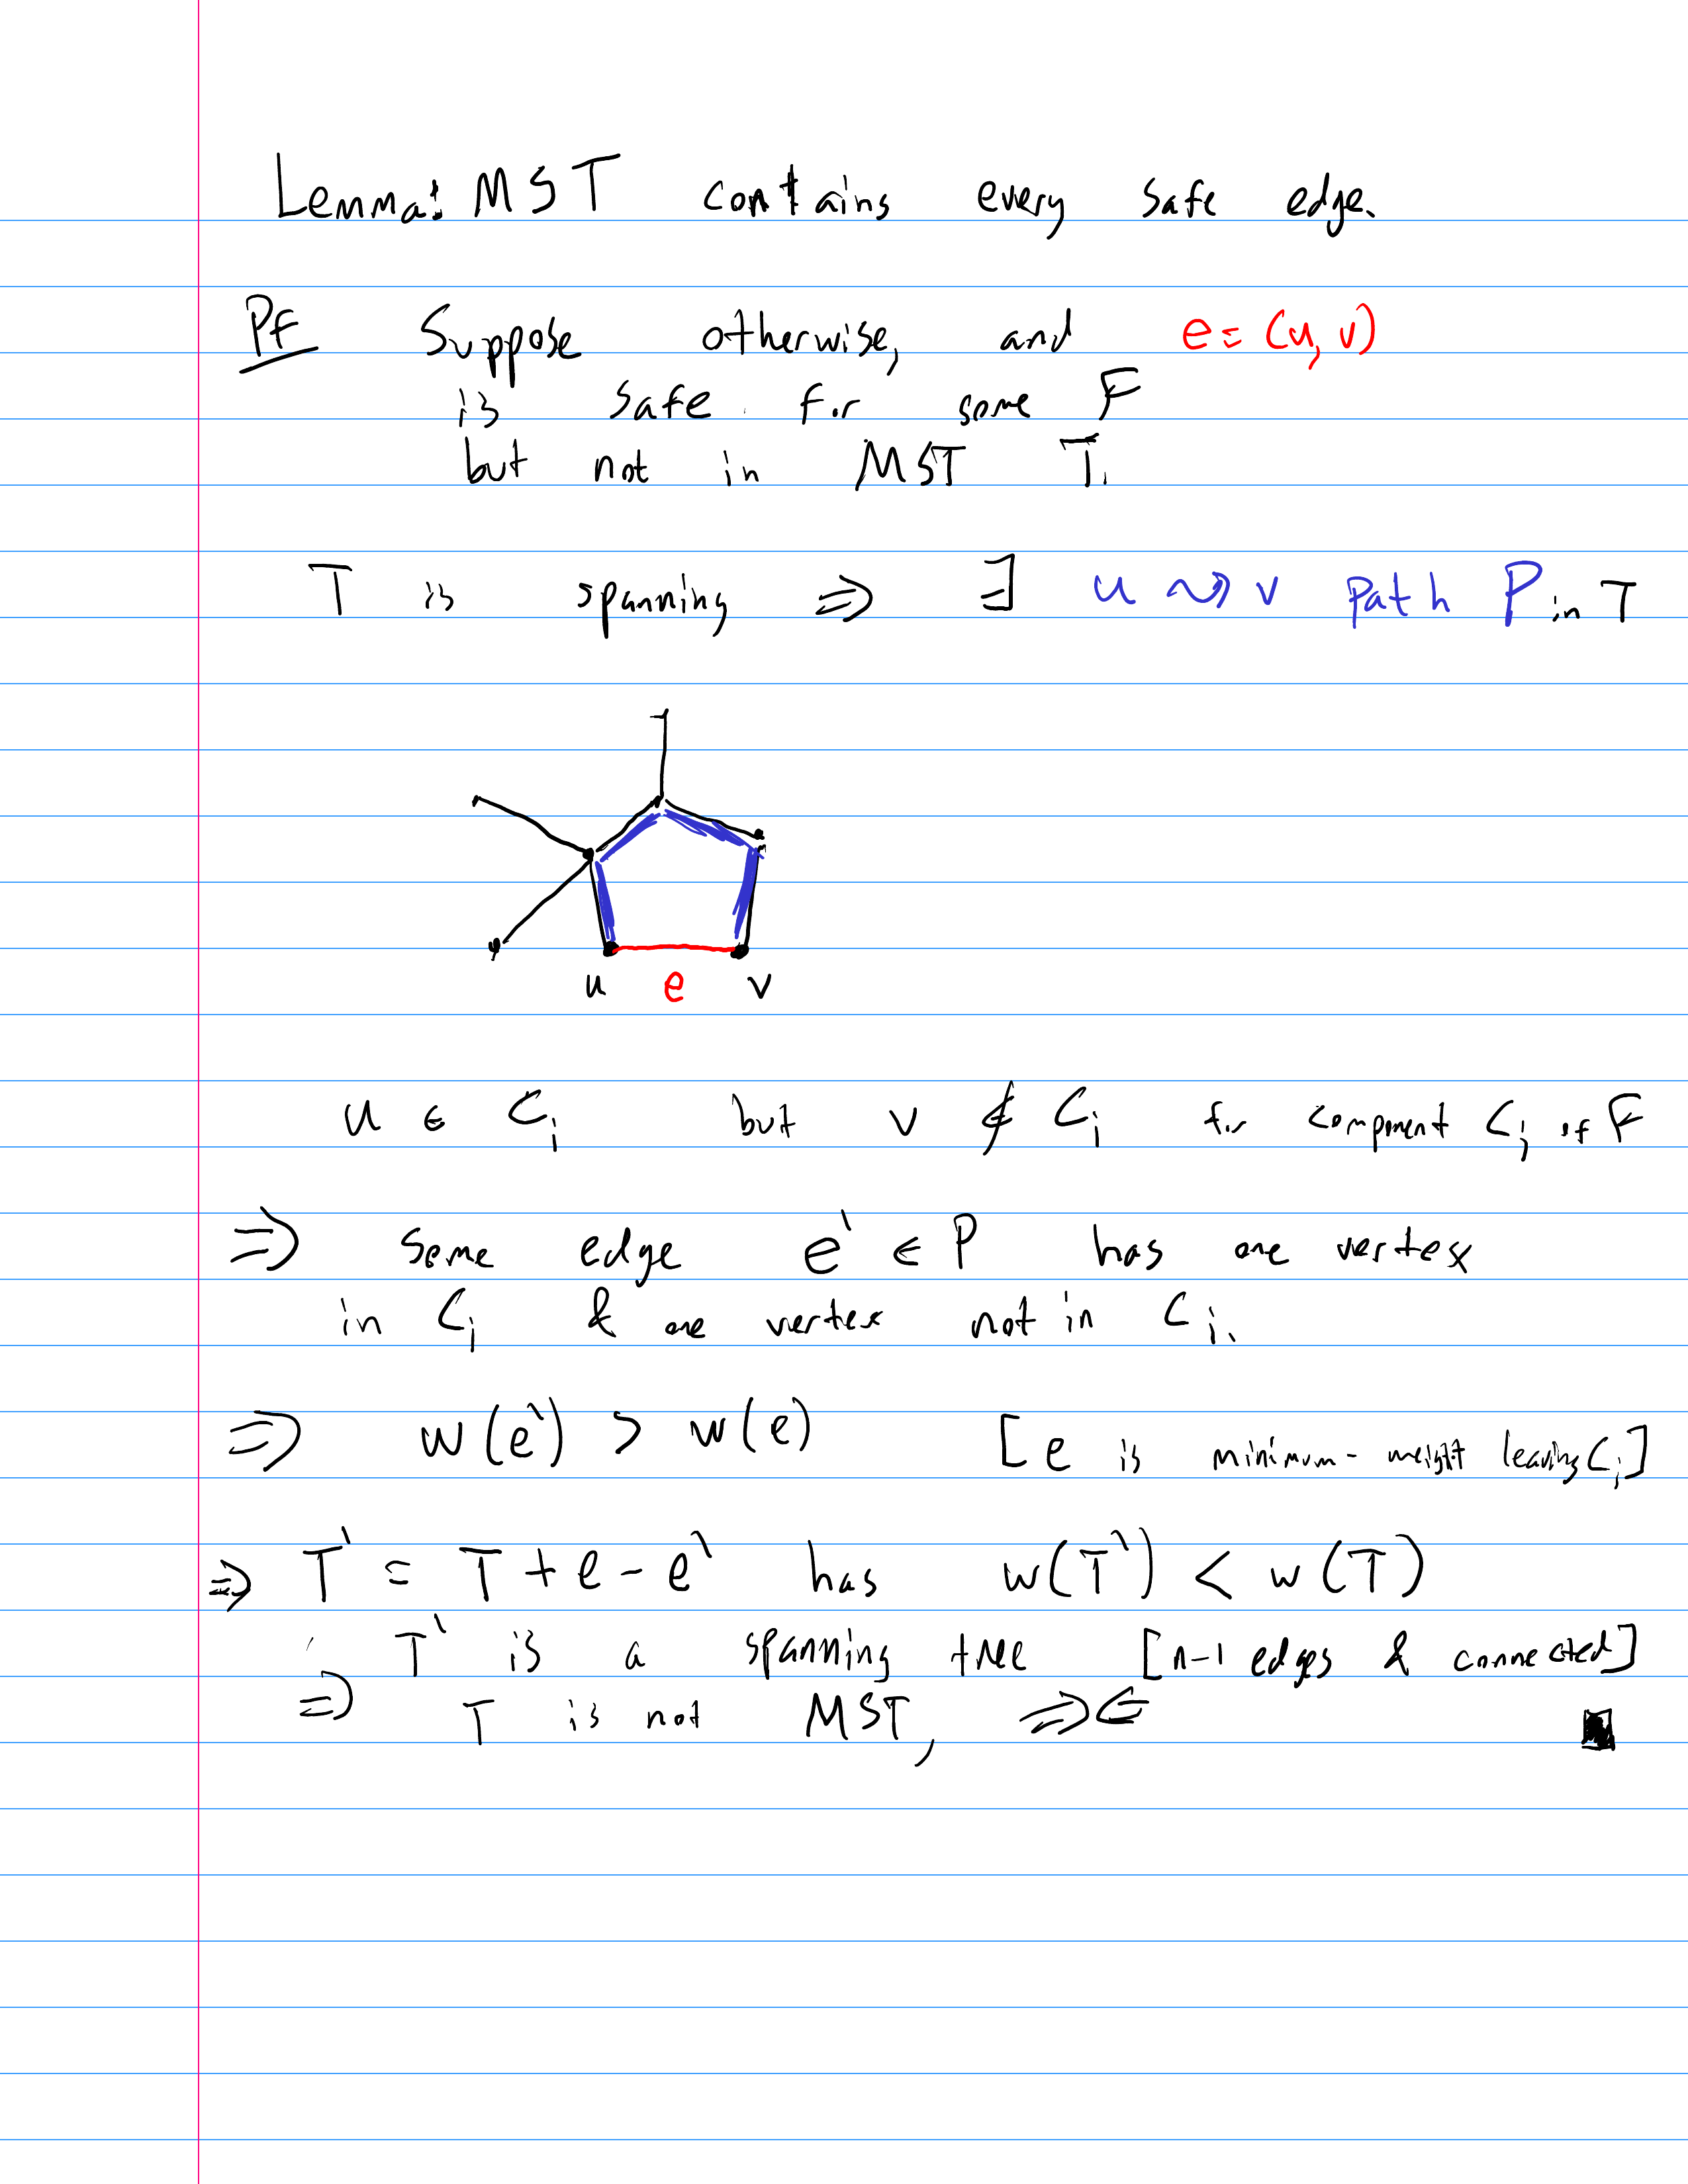 Lemma: MST contains every safe edge.
Pf Suppose otherwise, and e = (u, v)
is safe for some F
but not in MST T.
T is spanning ⇒ ∃ u ⇝ v path P in T
u e v
u ∈ Ci but v ∉ Ci for component Ci of F
⇒ some edge e' ∈ P has one vertex
in Ci & one vertex not in Ci.
⇒ w(e') > w(e) [e is minimum-weight leaving Ci]
⇒ T' = T + e - e' has w(T') < w(T)
T' is a spanning tree [n-1 edges & connected]
⇒ T is not MST, ⇒⇐